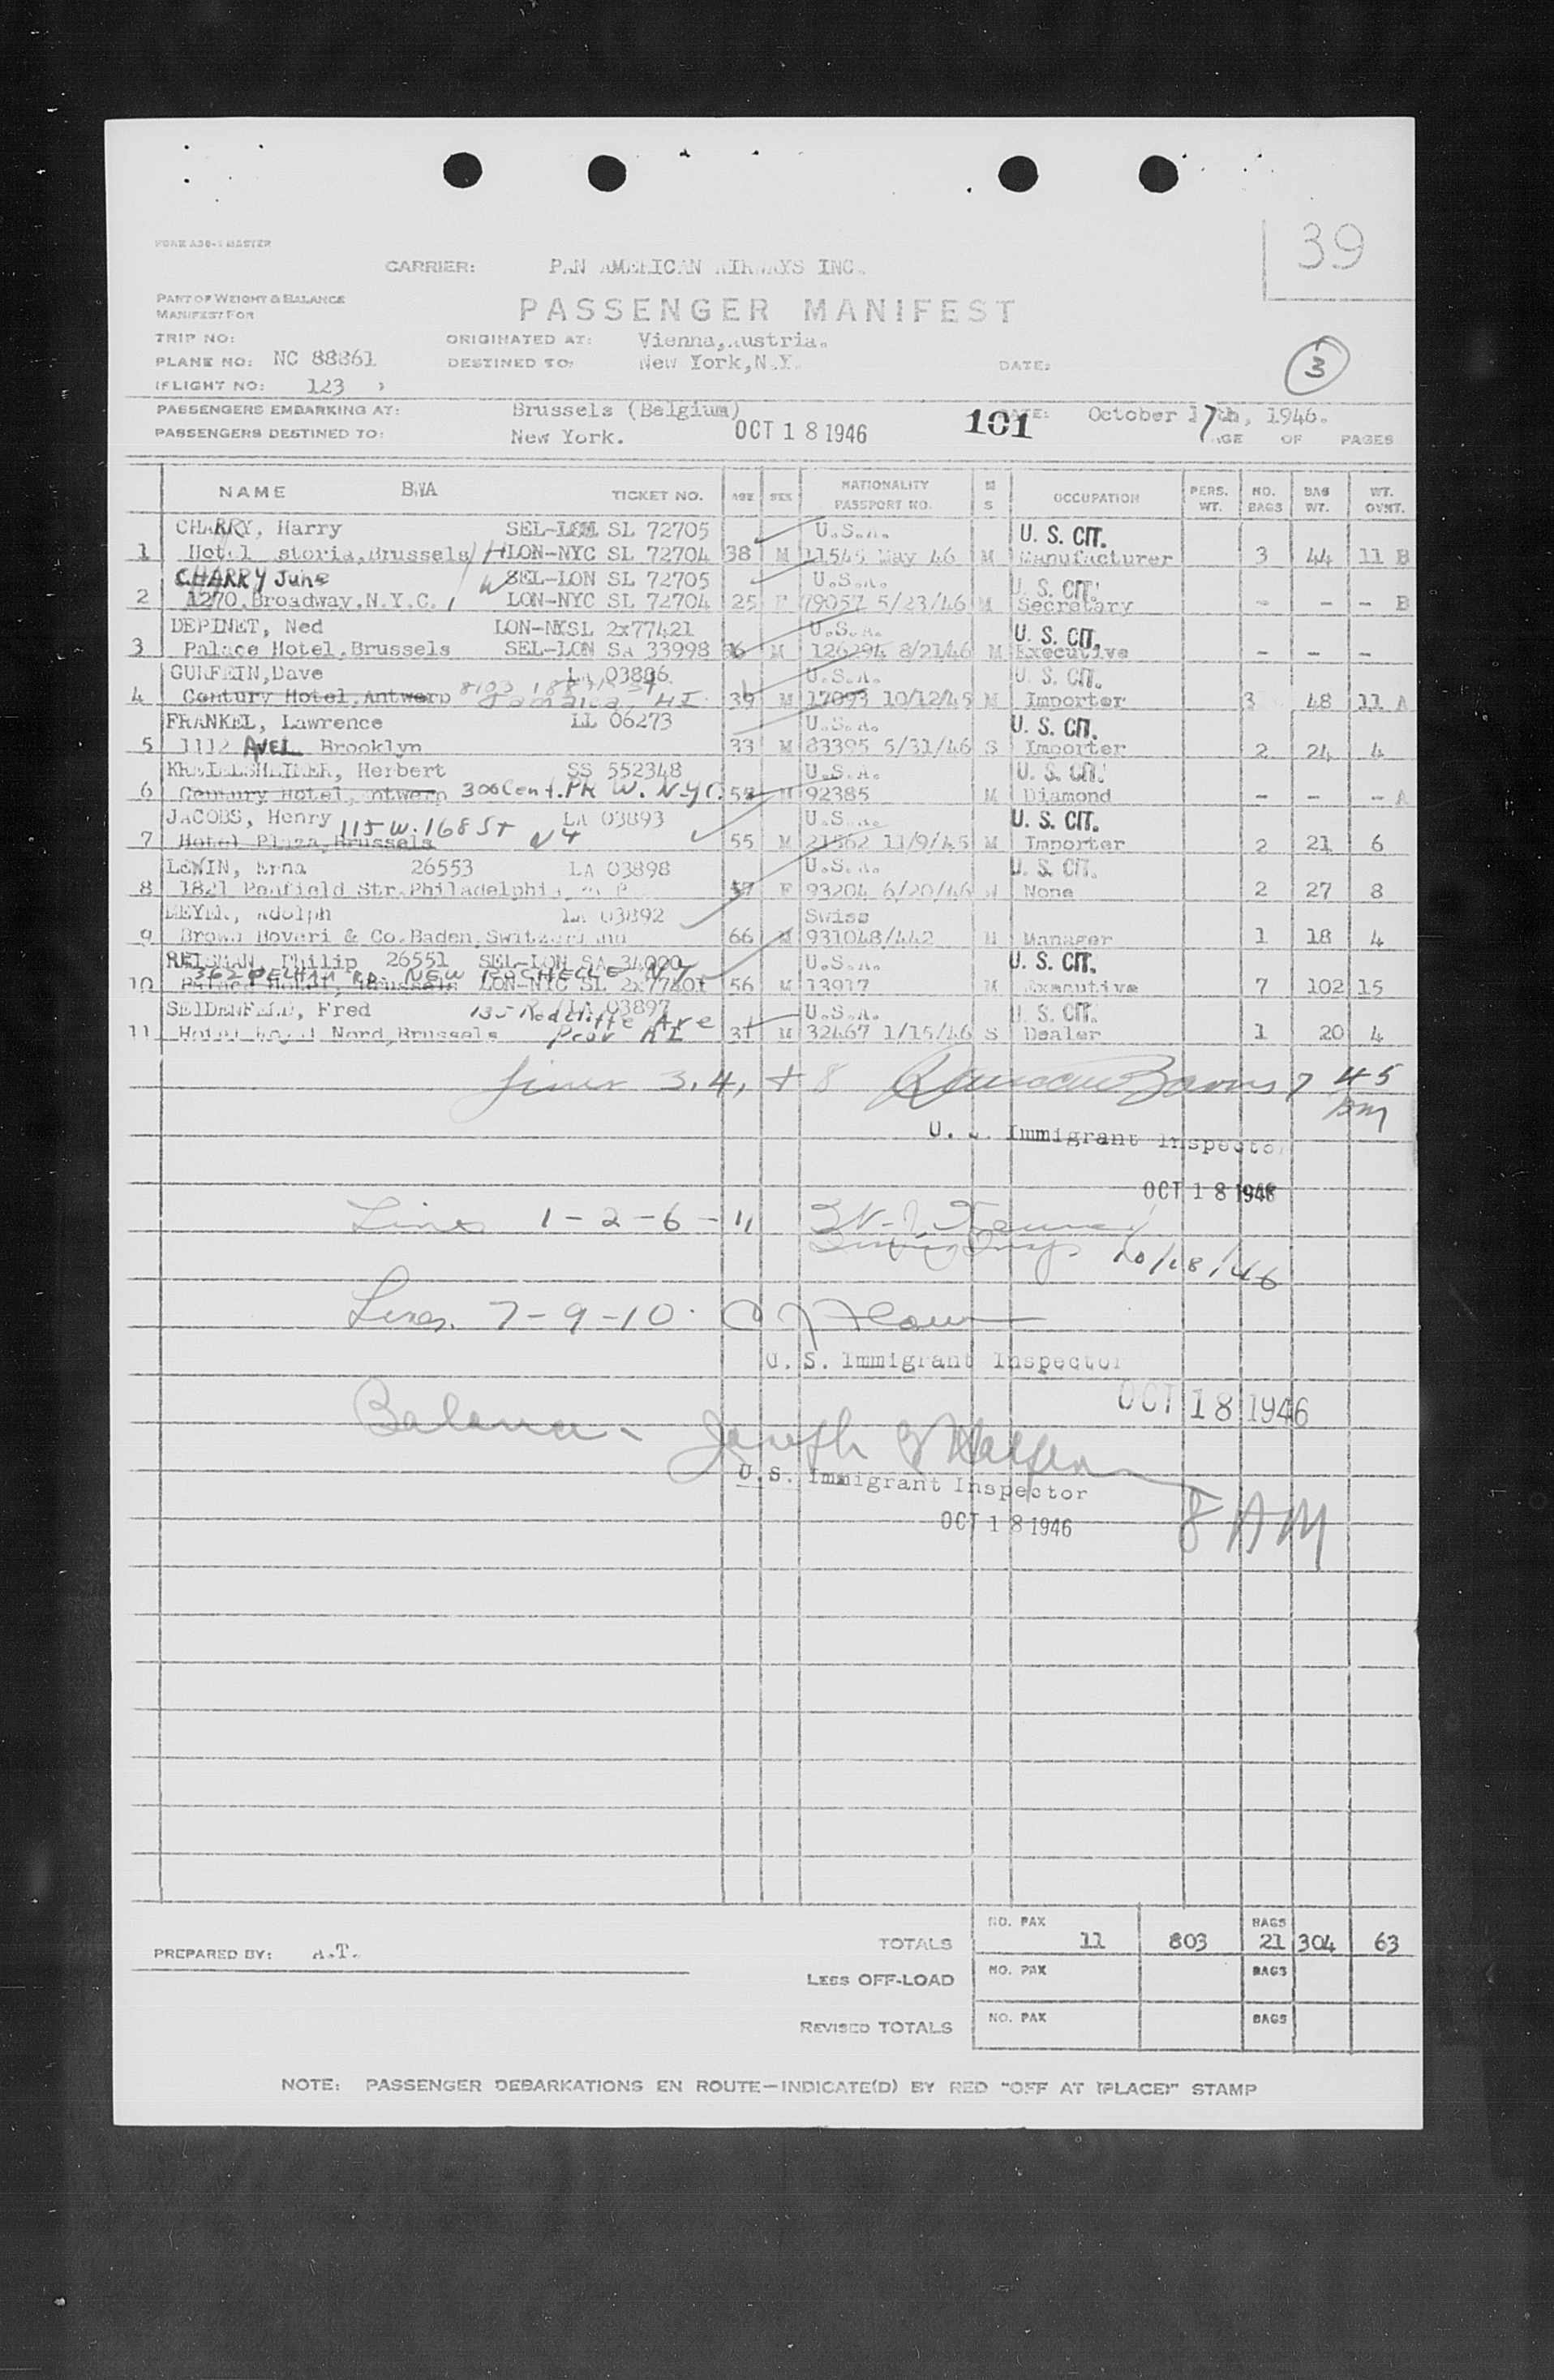 39
FORM ADD-1 MASTER
CARRIER: PAN AMERICAN AIRWAYS INC.
PART OF WEIGHT & BALANCE
MANIFEST FOR
PASSENGER MANIFEST
TRIP NO: ORIGINATED AT: Vienna, Austria.
PLANE NO: NC 88861 DESTINED TO: New York, N.Y. DATE: 3
(FLIGHT NO: 123 )
PASSENGERS EMBARKING AT: Brussels (Belgium) DATE: October 17th, 1946.
PASSENGERS DESTINED TO: New York. OCT 18 1946 101 PAGE OF PAGES
NAME TICKET NO. AGE SEX NATIONALITY PASSPORT NO. M S OCCUPATION PERS. WT. NO. BAGS BAG WT. WT. OVNT.
CHARRY, Harry SEL-LON SL 72705 U.S.A. U. S. CIT.
1 Hotel Astoria, Brussels LON-NYC SL 72704 38 M 11545 May 46 M Manufacturer 3 44 11 B
CHARRY June SEL-LON SL 72705 U.S.A. U. S. CIT.
2 1270, Broadway, N.Y.C. LON-NYC SL 72704 25 F 79057 5/23/46 M Secretary - - - B
DEPINET, Ned LON-NYSL 2x77421 U.S.A. U. S. CIT.
3 Palace Hotel, Brussels SEL-LON SA 33998 M 126294 8/21/46 M Executive - - -
GURFEIN, Dave LA 03886 U.S.A. U. S. CIT.
4 Century Hotel, Antwerp Jamaica, 39 M 17093 10/12/45 M Importer 3 48 11 A
FRANKEL, Lawrence LL 06273 U.S.A. U. S. CIT.
5 1112 AVE L Brooklyn 33 M 83395 5/31/46 S Importer 2 24 4
Herbert SS 552348 U.S.A. U. S. CIT.
6 Century Hotel, Antwerp 300 Cent. PK W. N.Y.C. M 92385 M Diamond - - - A
JACOBS, Henry LA 03893 U.S.A. U. S. CIT.
7 Hotel Plaza, Brussels 115 W. 168 St NY 55 M 21862 11/9/45 M Importer 2 21 6
Erna 26553 LA 03898 U.S.A. U. S. CIT.
8 1821 Penfield Str. Philadelphia 57 F 93204 6/20/46 None 2 27 8
MEYER, Adolph LA 03892 Swiss
9 Brown Boveri & Co. Baden, Switzerland 66 M 931048/442 M Manager 1 18 4
REISMAN, Philip 26551 SEL-LON SA 34000 U.S.A. U. S. CIT.
362 PELHAM RD. NEW ROCHELLE NY
10 Palace Hotel, Brussels LON-NYC SL 2x77401 56 M 13917 M Executive 7 102 15
SEIDENFELD, Fred LA 03897 U.S.A. U. S. CIT.
135 Radcliffe Ave
11 Nord, Brussels Prov RI 31 M 32467 1/15/46 S Dealer 1 20 4
Lines 3, 4, + 8 7 45 AM
U. S. Immigrant Inspector
OCT 18 1946
Lines 1 - 2 - 6 - 11
10/18/46
Lines. 7 - 9 - 10.
U. S. Immigrant Inspector
OCT 18 1946
Balance - Joseph
U. S. Immigrant Inspector
OCT 18 1946 8 AM
PREPARED BY: A.T.
TOTALS NO. PAX 11 803 BAGS 21 304 63
LESS OFF-LOAD NO. PAX BAGS
REVISED TOTALS NO. PAX BAGS
NOTE: PASSENGER DEBARKATIONS EN ROUTE—INDICATE(D) BY RED "OFF AT (PLACE)" STAMP